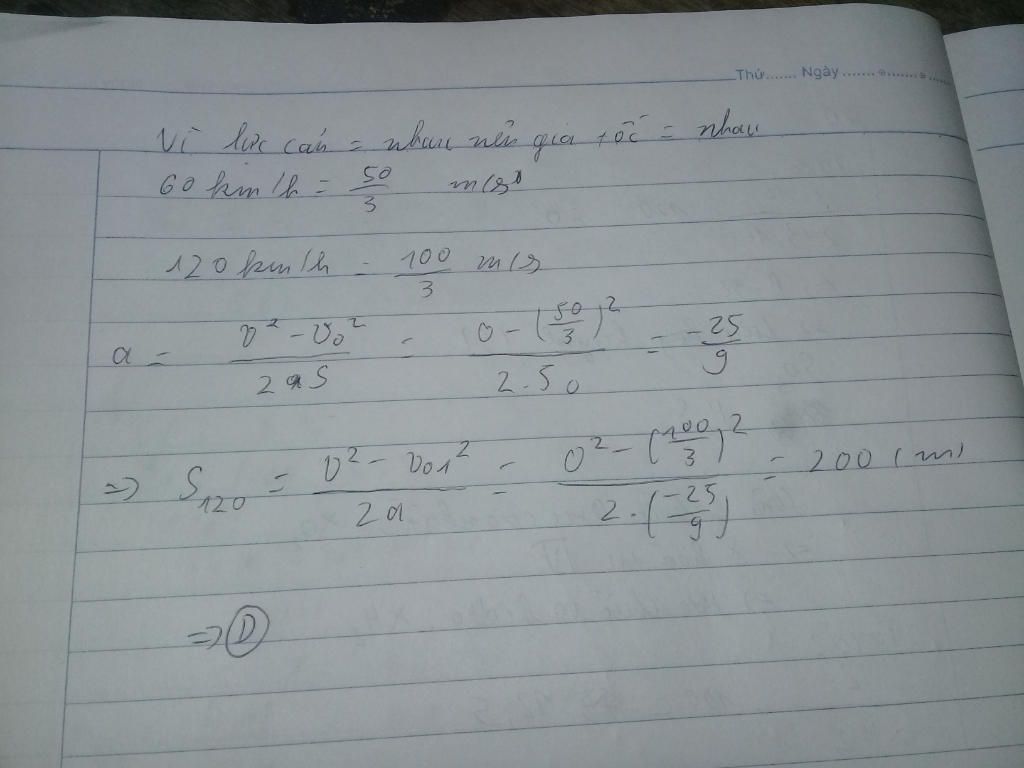 Thứ....... Ngày.................
Vì lực cản = nhau nên gia tốc = nhau
60 km/h = 50/3 m/s
120 km/h = 100/3 m/s
a = (v² - v₀²)/(2aS) = (0 - (50/3)²)/(2.50) = -25/9
=> S₁₂₀ = (v² - v₀₁²)/(2a) = (0² - (100/3)²)/(2.(-25/9)) = 200 (m)
=> D